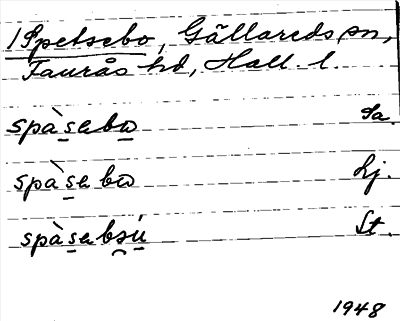 1 Spetsebo, Gällareds sn,
Faurås hd, Hall. l.
spàsebo Sa.
spàsebo Lj.
spàsebsú St.
1948